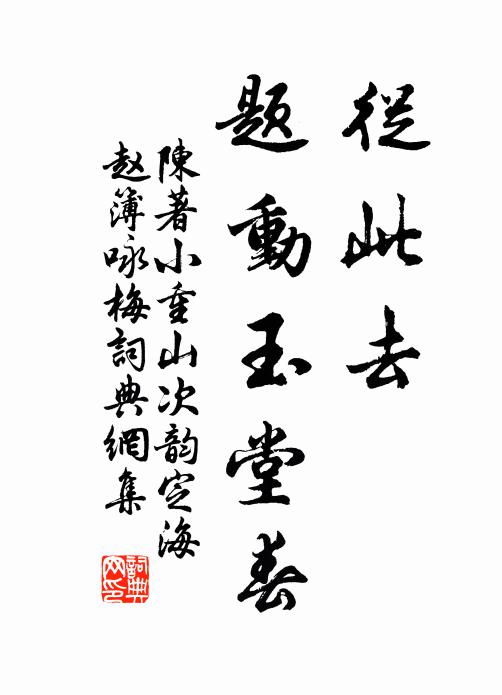 從此去
題動玉堂春
陳著小重山次韵定海
赵簿咏梅詞典網集
詞典網印